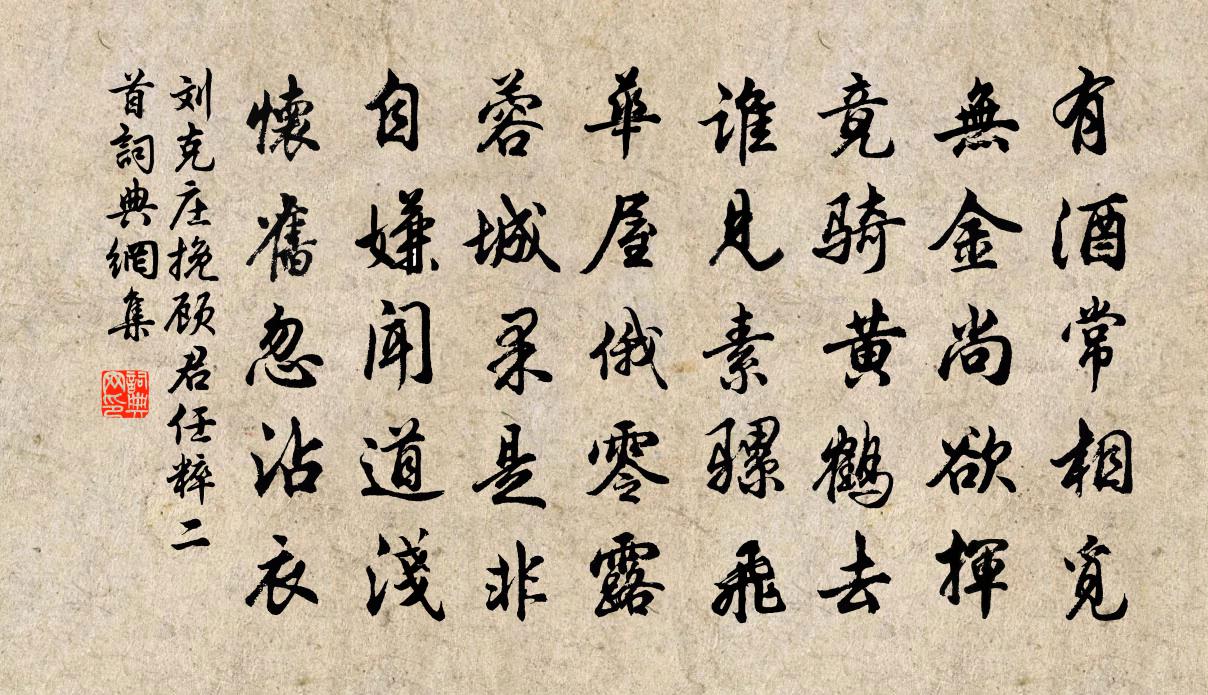 有酒常相覓
無金尚欲揮
竟骑黄鶴去
谁見素騾飛
華屋俄零露
蓉城果是非
自嫌闻道淺
懷舊忽沾衣
刘克庄挽顾君任粹二
首詞典網集
詞典网印